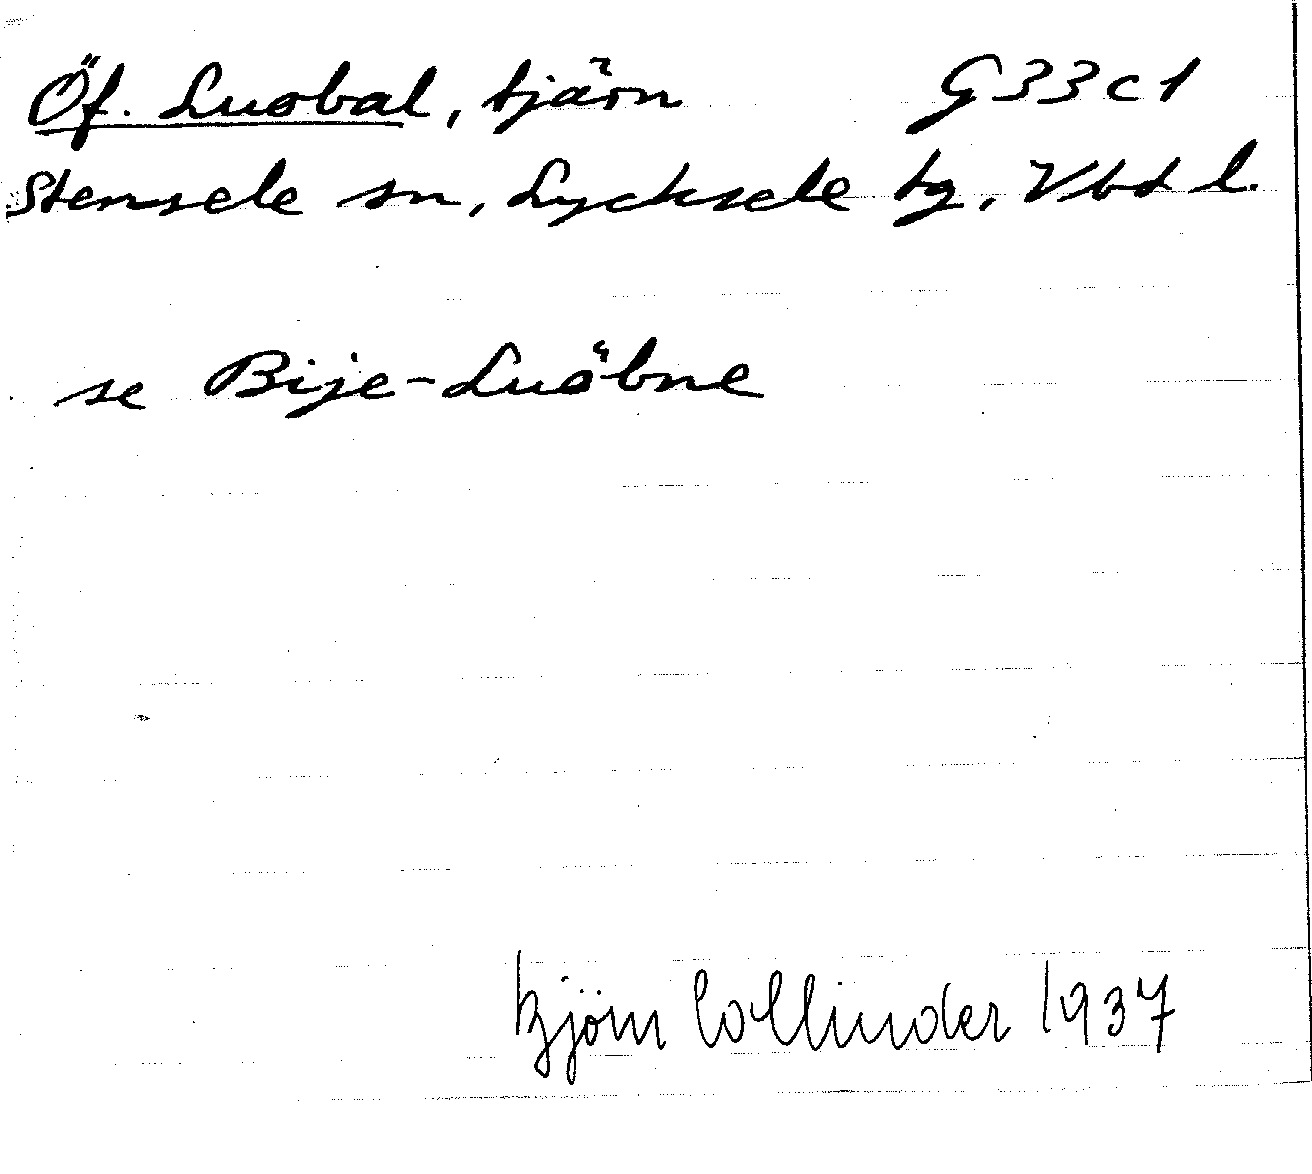 Öf. Luobal, tjärn G33c1
Stensele sn, Lycksele tg, Vbd l.
se Bije-Luöbne
Björn Collinder 1937